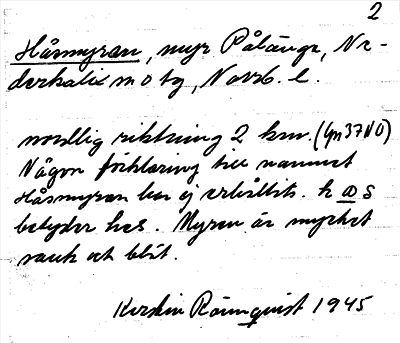 2
Håsmyran, myr Pålänge, Ne-
derkalix sn o tg, Norrb. l.
nordlig riktning 2 km. (Gn37NO)
Någon förklaring till namnet
Håsmyran har ej erhållits. has
betyder hes. Myren är mycket
sank och blöt.
Kerstin Rönnquist 1945